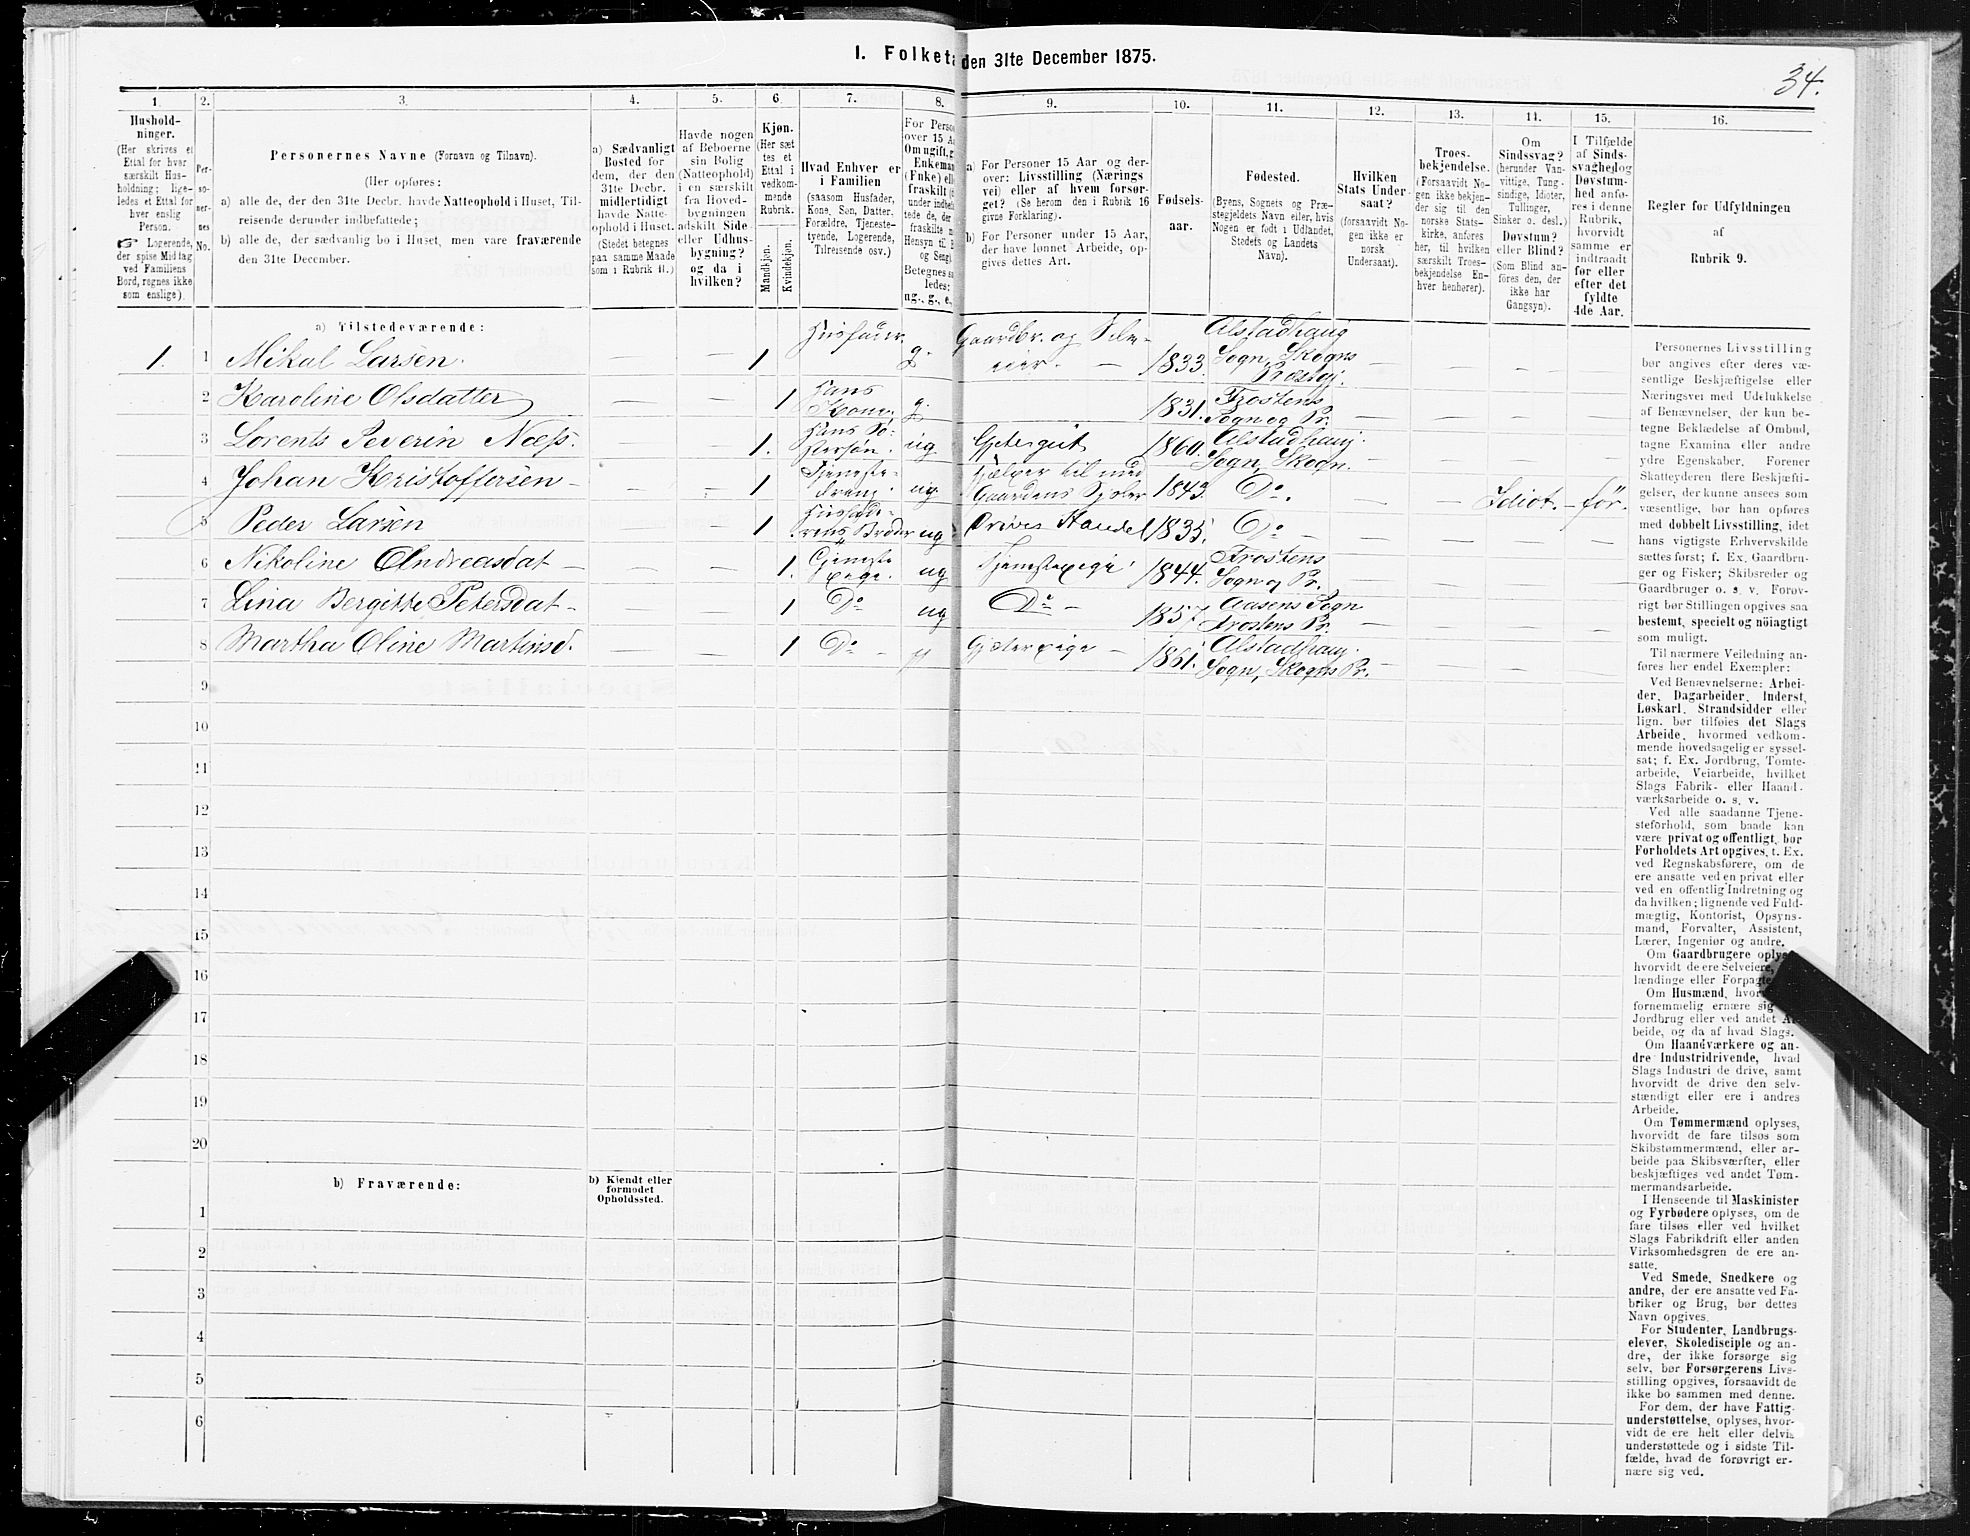 I. Folketæ den 31te December 1875.
34.
1.
Hushold-
ninger.
(Her skrives et
Ettal for hver
særskilt Hus-
holdning; lige-
ledes et Ettal for
hver enslig
Person.
☞ Logerende,
der spise Middag
ved Familiens
Bord, regnes ikke
som enslige).
2.
Per-
so-
ner-
nes
No.
3.
Personernes Navne (Fornavn og Tilnavn).
(Her opføres:
a) alle de, der den 31te Decbr. havde Natteophold i Huset, Til-
reisende derunder indbefattede;
b) alle de, der sædvanlig bo i Huset, men vare fraværende
den 31te December.
4.
a) Sædvanligt
Bosted for
dem, der den
31te Decbr.
midlertidigt
havde Natte-
ophold i Huset.
(Stedet betegnes
paa samme Maade
som i Rubrik 11.)
5.
Havde nogen
af Beboerne
sin Bolig
(Natteophold)
i en særskilt
fra Hoved-
bygningen
adskilt Side-
eller Udhus-
bygning?
og da i
hvilken?
6.
Kjøn.
(Her sæt-
tes et
Ettal i
vedkom-
mende
Rubrik.
Mandkjøn.
Kvindekjøn.
7.
Hvad Enhver er
i Familien
(saasom Husfader,
Kone, Søn, Datter,
Forældre, Tjeneste-
tyende, Logerende,
Tilreisende osv.)
8.
For Perso
over 15 A
Om ugift, g
Enkeman
(Enke) ell
fraskilt
ledes:
ug., g., e.,
9.
a) For Personer 15 Aar og der-
over: Livsstilling (Nærings
vei) eller af hvem forsør-
get? (Se herom den i Rubrik 16
givne Forklaring).
b) For Personer under 15 Aar,
der have lønnet Arbeide, op-
gives dettes Art.
10.
Fødsels-
aar.
11.
Fødested.
(Byens, Sognets og Præ-
stegjeldets Navn eller, hvis
Nogen er født i Udlandet,
Stedets og Landets
Navn).
12.
Hvilken
Stats Under-
saat?
(forsaavidt No-
gen ikke er
norsk
Undersaat).
13.
Troes-
bekjendelse.
(Forsaavidt No-
gen ikke bekjen-
der sig til den
norske Stats-
kirke, anføres
her, til hvilken
særskilt Troes-
bekjendelse En-
hver henhører).
14.
Om
Sindssvag?
(herunder Van-
vittige, Tung-
sindige, Idioter,
Tullinger,
Sinker o. desl.)
Døvstum?
eller Blind?
(Som Blind an-
føres den, der
ikke har
Gangsyn).
15.
I Tilfælde
af Sinds-
svaghed og
Døvstum-
hed anfø-
res i denne
Rubrik,
hvorvidt
samme er
indtraadt
før eller
efter det
fyldte
4de Aar.
16.
Regler for Udfyldningen
af
Rubrik 9.
a) Tilstedeværende:
1. 1 Mikal Larsen. — 1 Husfader. g. Gaardbr. og Selv-eier. — 1833. Alstadhaug Sogn, Skogns Præstegj. — — — —
2 Karoline Olsdatter — — 1 Hans Kone. g. 1831. Frostens Sogn og Pr. — — — —
3 Lorents Peverin Næss. — — 1. ug. Gjetergut 1860. Alstadhaug Sogn, Skogn. — — — —
4 Johan Kristoffersen — — — 1 Tjeneste-dreng. ug. Hjælper til med Gaardens 1843. Do. — — Idiot. — før.
5 Peder Larsen — — 1 Husfade-rens Broder ug Drives Handel 1835. Do — — — — —
6 Nikoline Andreasdat — — — 1. Tjeneste pige. ug Tjenestepige 1844. Frostens Sogn og Pr. — — — —
7 Lina Bergitte Petersdat — — — 1 Do ug Do — 1857 Aasens Sogn Frostens Pr. — — — —
8 Martha Oline Martinsd. — — 1 Do — Gjeterpige — 1861. Alstadhaug Sogn, Skogns Pr. — — — —
9
10
11
12
13
14
15
16
17
18
19
20
b) Fraværende:
b) Kjendt eller
formodet
Opholdssted.
1
2
3
4
5
6
Personernes Livsstilling
bør angives efter deres væ-
sentlige Beskjæftigelse eller
Næringsvei med Udelukkelse
af Benævnelser, der kun be-
tegne Beklædelse af Ombud,
tagne Examina eller andre
ydre Egenskaber. Forener
Skatteyderen flere Beskjæfti-
gelser, der kunne ansees som
væsentlige, bør han opføres
med dobbelt Livsstilling, idet
hans vigtigste Erhvervskilde
sættes først; f. Ex. Gaardbru-
ger og Fisker; Skibsreder og
Gaardbruger o. s. v. Forøv-
rigt bør Stillingen opgives saa
bestemt, specielt og nöiagtigt
som muligt.
Til nærmere Veiledning an-
føres her endel Exempler:
Ved Benævnelserne: Arbei-
der, Dagarbeider, Inderst,
Løskarl, Strandsidder eller
lign. bør tilføies det Slags
Arbeide, hvormed vedkom-
mende hovedsagelig er syssel-
sat; f. Ex. Jordbrug, Tomte-
arbeide, Veiarbeide, hvilket
Slags Fabrik- eller Haand-
værksarbeide o. s. v.
Ved alle saadanne Tjene-
steforhold, som baade kan
være privat og offentligt, bør
Forholdets Art opgives, t. Ex.
ved Regnskabsførere, om de
ere ansatte ved en privat eller
ved en offentlig Indretning og
da hvilken; lignende ved Fuld-
mægtig, Kontorist, Opsyns-
mand, Forvalter, Assistent,
Lærer, Ingeniør og andre.
Om Gaardbrugere oplyses
hvorvidt de ere Selveiere,
lændinge eller Forpagtere
Om Husmænd, hvor
fornemmelig ernære sig
Jordbrug eller ved andet Ar-
beide, og da af hvad Slags.
Om Haandværkere og an-
dre Industridrivende, hvad
Slags Industri de drive, samt
hvorvidt de drive den selv-
stændigt eller ere i andres
Arbeide.
Om Tømmermænd oplyses,
hvorvidt de fare tilsøs som
Skibstømmermænd, eller ar-
beide paa Skibsværfter, eller
beskjæftiges ved andet Tøm-
mermandsarbeide.
I Henseende til Maskinister
og Fyrbødere oplyses, om de
fare tilsøs eller ved hvilket
Slags Fabrikdrift eller anden
Virksomhedsgren de ere an-
satte.
Ved Smede, Snedkere og
andre, der ere ansatte ved Fa-
briker og Brug, bør dettes
Navn opgives.
For Studenter, Landbrugs-
elever, Skoledisciple og an-
dre, der ikke forsørge sig
selv, bør Forsørgerens Livs-
stilling opgives, forsaavidt de
ikke bo sammen med denne.
For dem, der have Fattig-
understøttelse, oplyses, hvor-
vidt de ere helt eller delvis
understøttede og i sidste Til-
fælde, hvad de forøvrigt er-
nære sig ved.